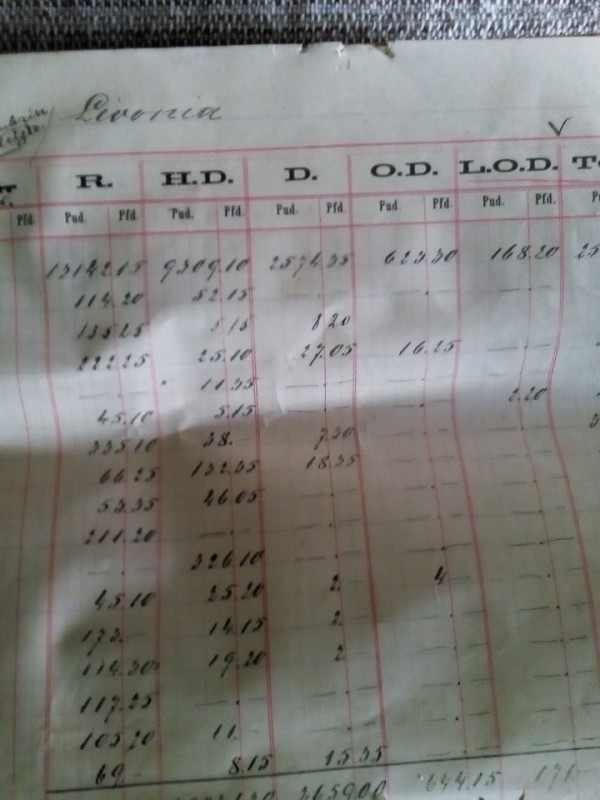 Livonia
R. H.D. D. O.D. L.O.D.
Pfd. Pud. Pfd. Pud. Pfd. Pud. Pfd. Pud. Pfd. Pud. Pfd.
13142.15 9309.10 2574.35 623.30 168.20
114.20 52.15
135.25 5.15 8.20
222.25 25.10 27.05 16.25
11.35
45.10 5.15 2.20
335.10 38.- 7.30
66.25 132.35 18.35
53.35 46.05
211.20
326.10
45.10 25.20 2. 4
173.- 14.15 2.
114.30 19.20 2
117.25
105.20 11.
69.- 8.15 15.35
2659.00 644.15